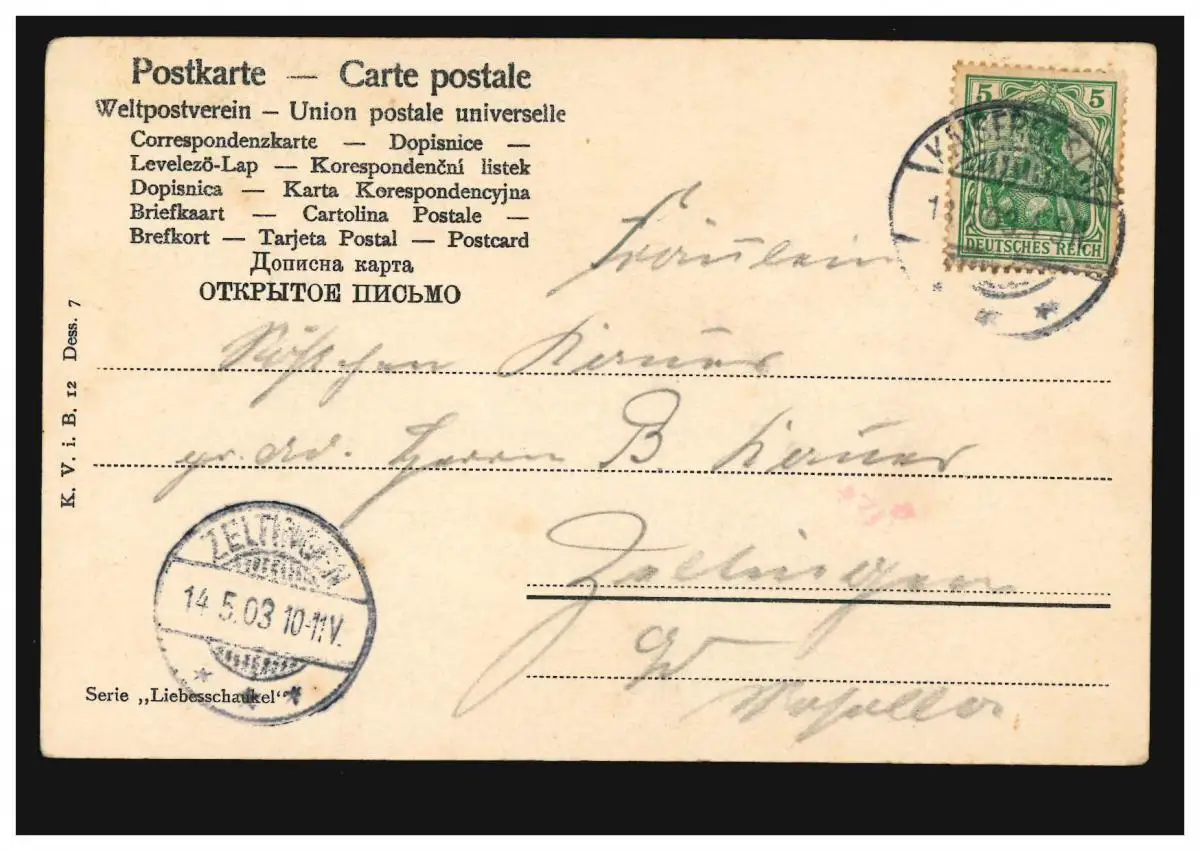 Postkarte — Carte postale
Weltpostverein – Union postale universelle
Correspondenzkarte — Dopisnice —
Levelezö-Lap — Korespondenční listek
Dopisnica — Karta Korespondencyjna
Briefkaart — Cartolina Postale —
Brefkort — Tarjeta Postal — Postcard
Дописна карта
ОТКРЫТОЕ ПИСЬМО
5 5
DEUTSCHES REICH
KAISERSESCH
Fräulein
Kauer
Herrn B. Kauer
Zeltingen
K. V. i. B. 12 Dess. 7
ZELTINGEN
14.5.03 10-11V.
Serie „Liebesschaukel“